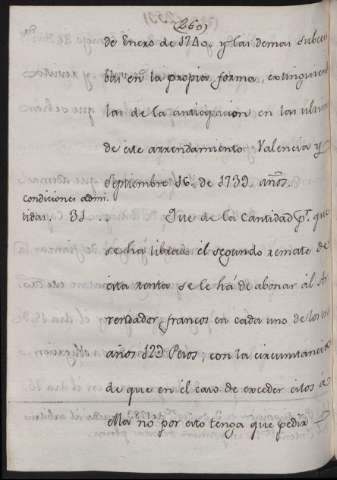 (260)
de Enero de 1740, y las demas subce
bas en la propia forma, extinguiend
las de la anticipacion en las ultim
de este arrendamiento Valencia y
Septiembre 16. de 1739. años.
Condiciones admi
tidas. 31. Que de la cantidad pr. que
se ha librado el segundo remate de
esta renta se le há de abonar al A
rrendador francos en cada uno de los
años 123 Pesos; con la circunstancia
de que en el caso de exceder estos á
ella no por esto tenga que pedir